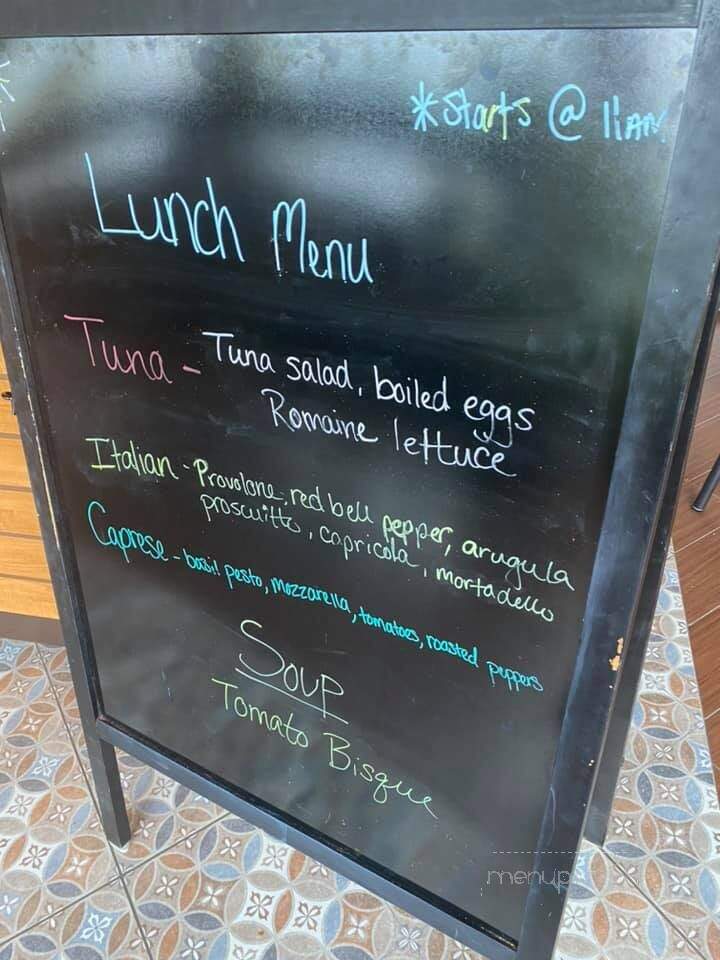 *Starts @ 11AM
Lunch Menu
Tuna - Tuna salad, boiled eggs
Romaine lettuce
Italian - Provolone, red bell pepper, arugula
proscuitto, capricola, mortadello
Caprese - basil pesto, mozzarella, tomatoes, roasted peppers
Soup
Tomato Bisque
menupix